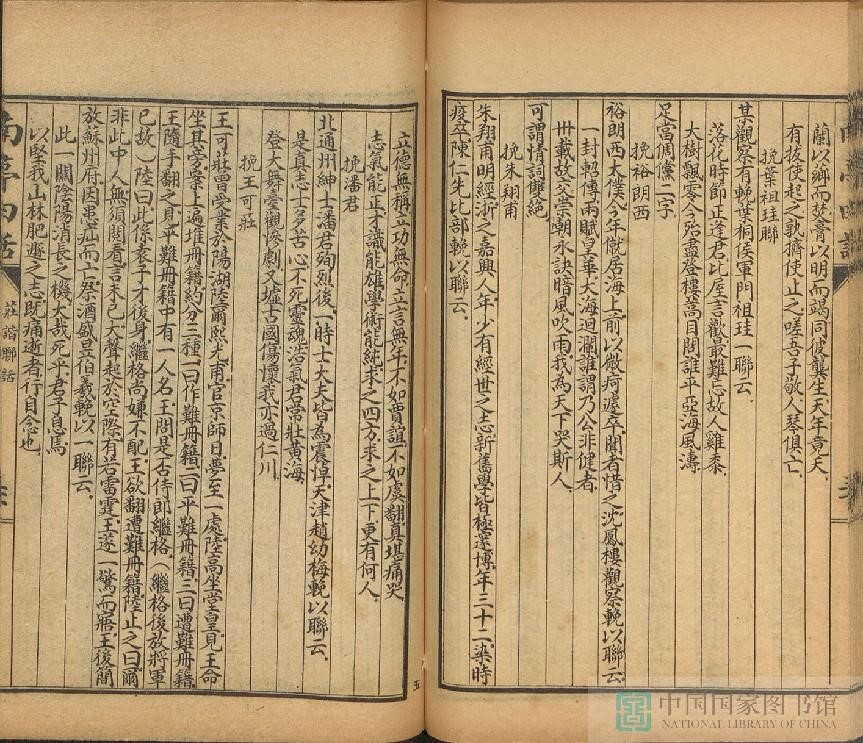 蘭以鄉而焚膏以明而竭同彼龔生天年竟夭
有後使起之孰擠使止之嗟吾子敬人琴俱亡
挽葉祖珪聯
某觀察有輓葉桐侯軍門祖珪一聯云
落花時節正逢君比屋言歡最難忘故人雞黍
大樹飄零今殆盡登樓蒿目問誰平亞海風濤
足當倜儻二字
挽裕朗西
裕朗西太僕今年僦居海上前以微疴遽卒聞者惜之沈鳳樓觀察輓以聯云
一封軺傳兩賦皇華大海迴瀾誰謂乃公非健者
卅載故交崇朝永訣暗風吹雨我為天下哭斯人
可謂情詞雙絕
挽朱翔甫
朱翔甫明經浙之嘉興人年少有經世之志新舊學皆極邃博年三十二染時
疫卒陳仁先比部輓以聯云
立德無稱立功無命立言無年不如賈誼不如虞翻真堪痛哭
志氣能正才識能雄學術能純求之四方求之上下更有何人
挽潘君
北通州紳士潘君殉烈後一時士大夫皆為震悼天津趙幼梅輓以聯云
是真志士多苦心不死靈魂浩氣君當壯黃海
登大舞臺觀慘劇又墟古國傷懷我亦過仁川
挽王可莊
王可莊曾受業於陽湖陸爾熙尤甫官京師日夢至一處陸高坐堂皇見王命
坐其旁案上遍堆冊籍約分三種一曰作難冊籍二曰平難冊籍三曰遭難冊籍
王隨手翻之見平難冊籍中有一人名王問是否侍郎繼格(繼格後放將軍
已故)陸曰此係袁子才後身繼格尚嫌不配王欲翻遭難冊籍陸止之曰爾
非此中人無須閱看言未已大聲起於空際有若雷霆王遂一驚而寤王後簡
放蘇州府因患疝而亡祭酒盛昱伯羲輓以一聯云
此一關陰陽消長之機大哉死乎君子息焉
以堅我山林肥遯之志既痛逝者行自念也
莊諧聯話
五
中国国家图书馆
NATIONAL LIBRARY OF CHINA